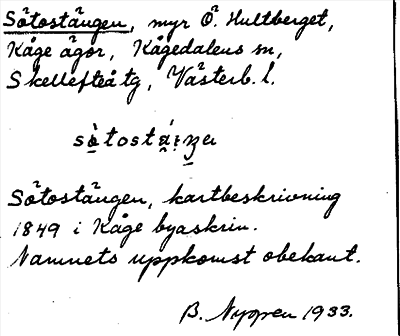 Sötostängen, myr Ö. Hultberget,
Kåge ägor, Kågedalens sn,
Skellefteå tg, Västerb. l.
Sötostängen, kartbeskrivning
1849 i Kåge byaskrin.
Namnets uppkomst obekant.
B. Nygren 1933.